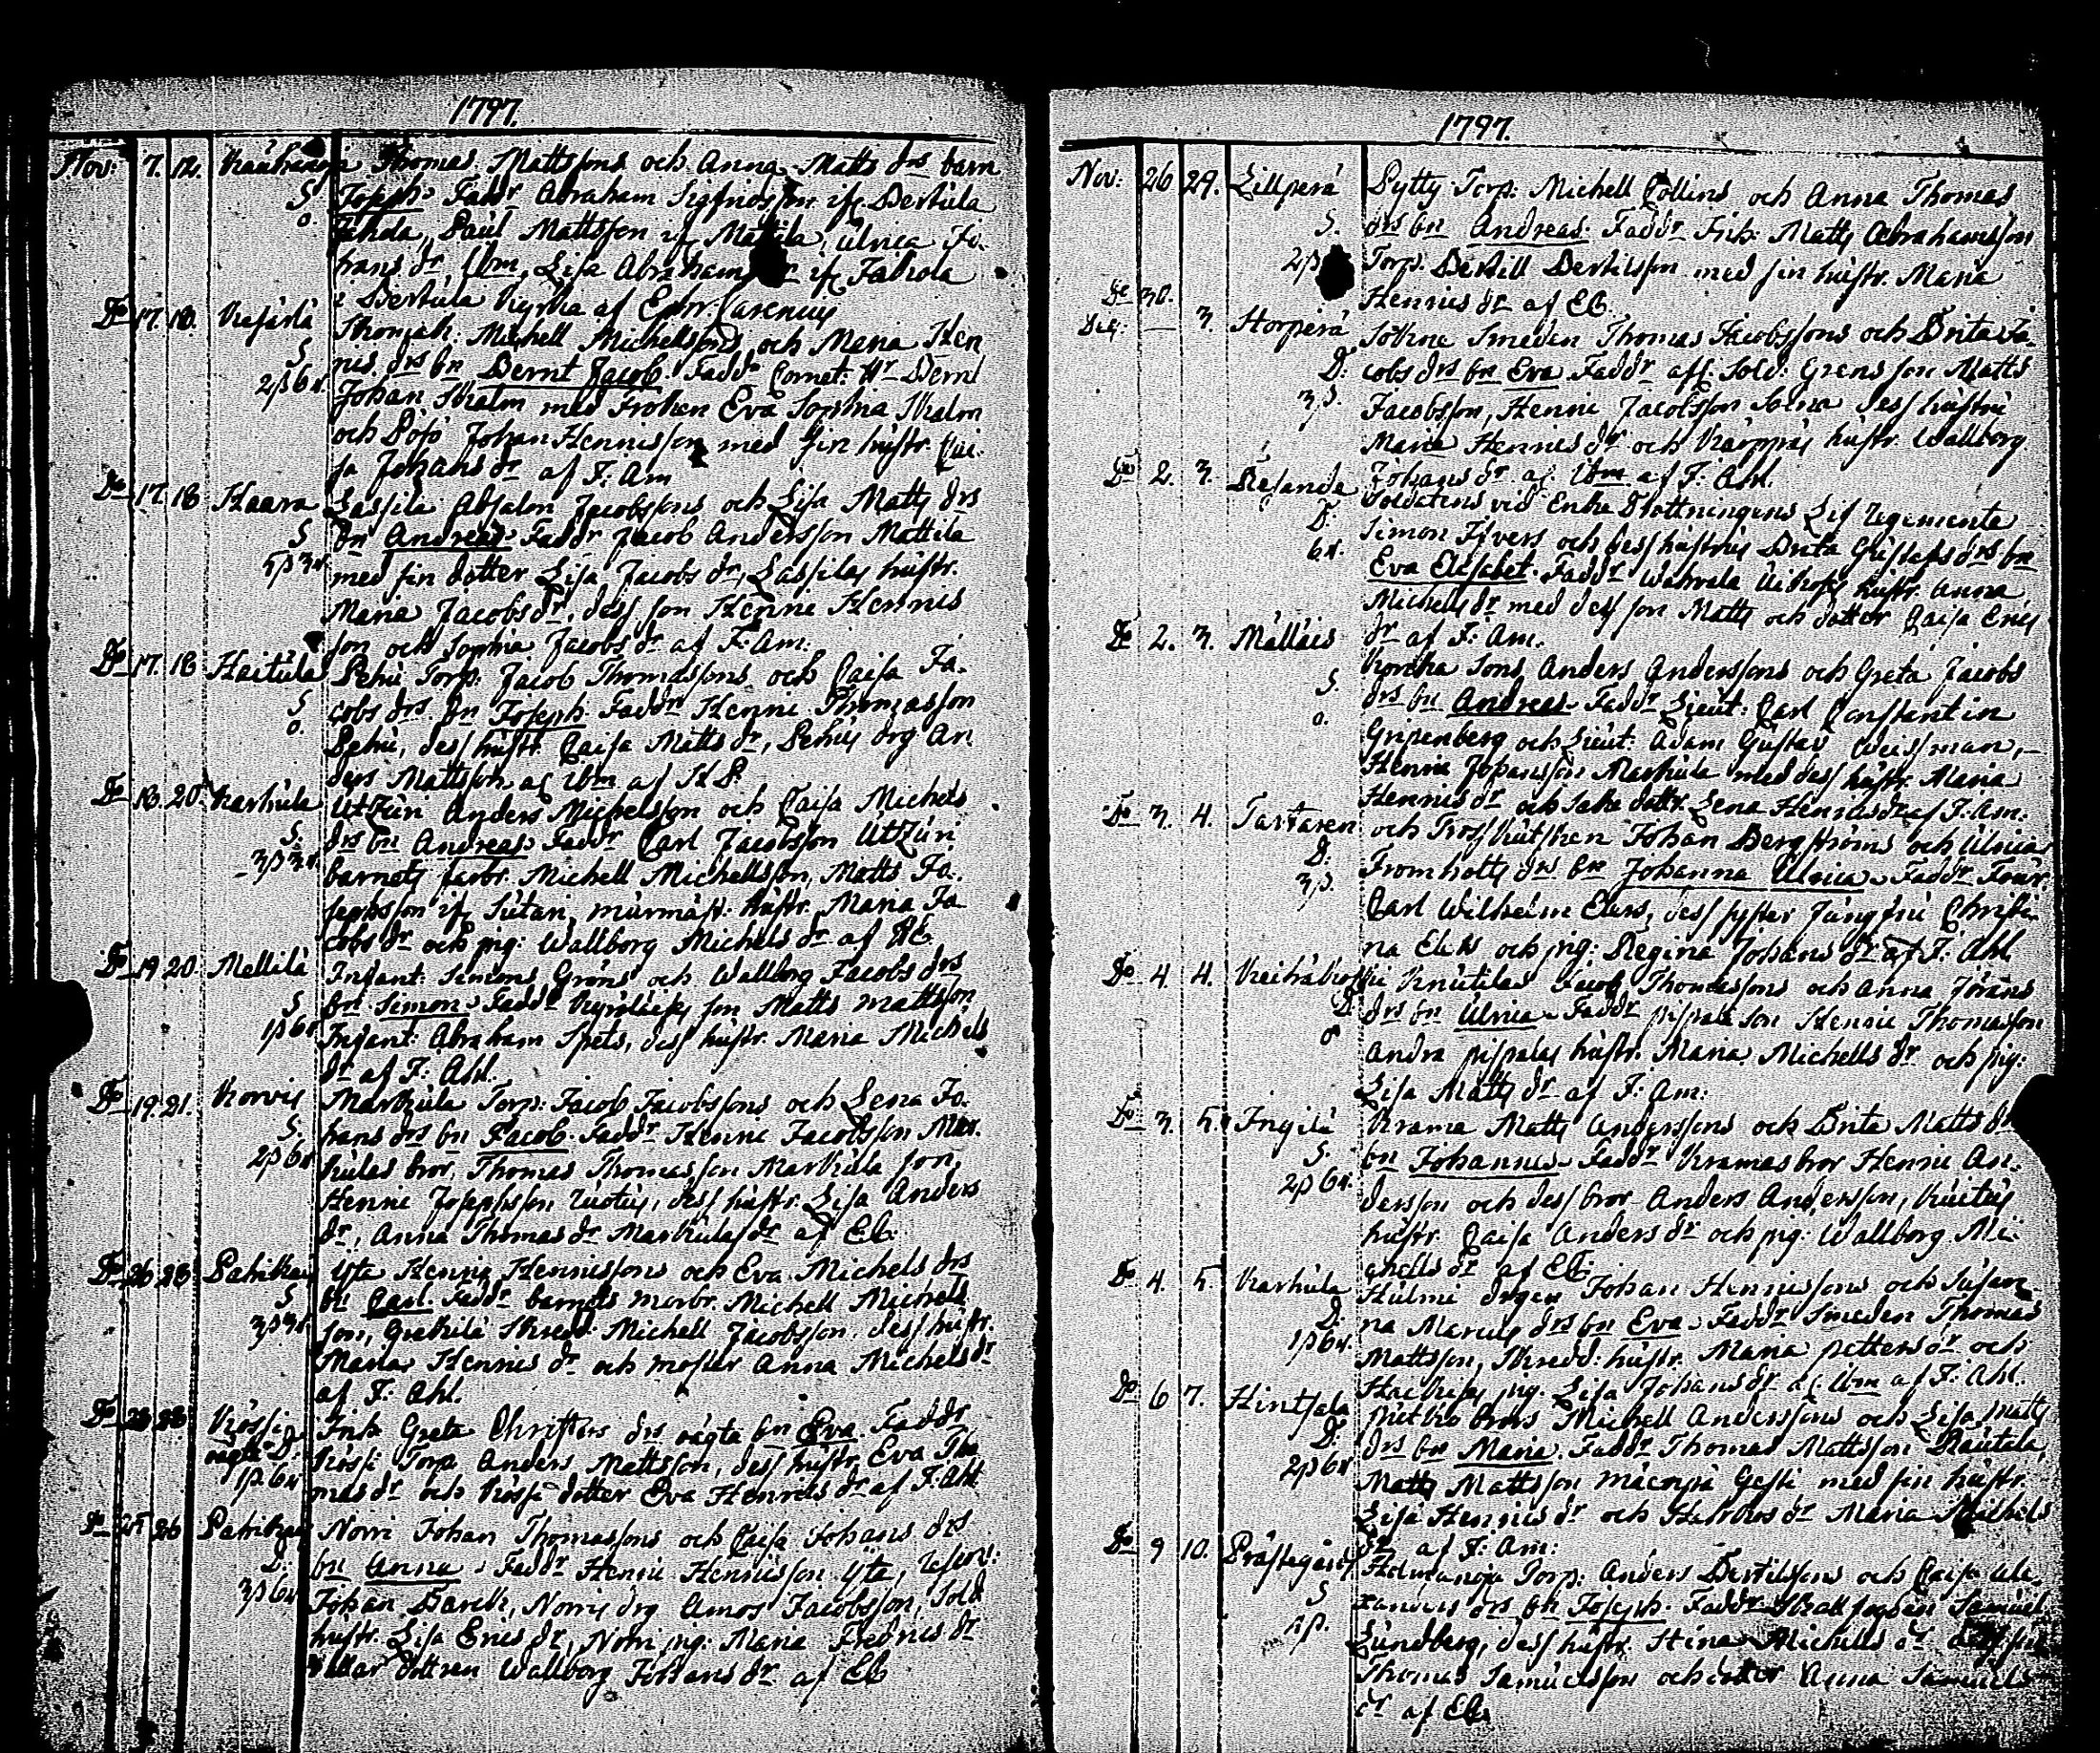 1797.
Nov: 7. 12. Thomas Mattssons och Anna Matts drs barn
S Joseph Faddr Abraham Sigfridsson ifr Bertula
o. Paul Mattsson ifr Mattila, Ulrica Jo-
hans dr, ibm, Lisa Abrahams dr ifr Jakola
i Bertula Kyrka af
Do 17. 18. Michell Michellssons och Maria Hen
S nis drs bn Bernt Jacob. Faddr Cornet: Hr Bernt
2ß 6r. Johan Skalm med Fröken Eva Sophia Skalm
och Johan Hennisson med sin hustr. Cai-
sa Johans dr af F: Am
Do 17. 18 Haara Lassila Absalon Jacobssons och Lisa Matts drs
S bn Andreas Faddr Jacob Andersson Mattila
5ß 3r med sin dotter Lisa Jacobs dr, Lassilas hustr.
Maria Jacobs dr, dess son Henne Hennis
son och Sophia Jacobs dr af F: Am:
Do 17. 18 Haitula Pehu Torp: Jacob Thomassons och Caisa Ja-
S cobs drs bn Joseph Faddr Henne Thomasson
o. Pehu, dess hustr. Caisa Matts dr, Pehus drg An-
ders Mattsson af ibm af
Do 18. 20. Karhula Anders Michelsson och Caisa Michels
S. drs bn Andreas Faddr Carl Jacobsson
3ß 3r. barnets farbr. Michell Michellsson, Matts Jo-
sephsson ifr Sutari, murmäst: hustr. Maria Ja
cobs dr och pig: Wallborg Michels dr af
Do 19 20. Mellilä Simons Gröns och Wallborg Jacobs drs
S bn Simon. Faddr son Matts Mattsson
1ß 6r Abraham Spets, dess hustr. Maria Michels
dr af F: Ahl.
Do 19. 21. Korvis Markula Torp: Jacob Jacobssons och Lena Jo-
S. hans drs bn Jacob. Faddr Henne Jacobsson Mar-
2ß 6r. kulas bror, Thomas Thomasson Markula son,
Henne Josephsson, dess hustr. Lisa Anders
dr, Anna Thomas dr Markulas dr af EC.
Do 26 28 Yte Henne Hennissons och Eva Michels drs
S bn Carl. Faddr barnets morbr. Michell Michels
3ß 3r. son, Skredd: Michell Jacobsson, dess hustr.
Maria Hennis dr och moster Anna Michels dr
af F: Ahl.
Do 28 28 Greta Christers drs oägta bn Eva. Faddr
oägta D. Torp Anders Mattsson, dess hustr. Eva Tho
1ß 6r mas dr och dotter Eva Henrics dr af F: Ahl
Do 25 26 Norri Johan Thomassons och Caisa Johans drs
D. bn Anna. Faddr Henne Hennisson Yte,
3ß 6r Johan, Norris drg Amos Jacobsson, Sold
hustr. Lisa Erics dr, Norri pig: Maria Fredrics dr
dottren Wallborg Johans dr af EC
1797.
Nov: 26 29. Lillperä Pytty Torp: Michell Collins och Anna Thomas
S. drs bn Andreas. Faddr Matts Abrahamsson
2ß Torp: Bertill Bertilsson med sin hustr. Maria
Do 30. Hennis dr af EC.
Dec: 3. Storperä Smeden Thomas Jacobssons och Brita Ja-
D. cobs drs bn Eva Faddr afs. Sold: Grens son Matts
3ß. Jacobsson, Henne Jacobsson dess hustru
Maria Hennis dr och hustr. Wallborg
Johans dr af ibm af F: Ahl.
Do 2. 3. Soldatens vid Enke Drottningens Lif regemente
D. Simon Ifvers och dess hustrus Brita Gustafs drs bn
6r. Eva Elisabet. Faddr hustr. Anna
Michels dr med dess son Matts och dotter Caisa Erics
Do 2. 3. Mälläis dr af F: Am.
Sons Anders Anderssons och Greta Jacobs
S. drs bn Andreas Faddr Lieut: Carl Constantin
o. Gripenberg och Lieut: Adam Gustav Weissman,
Henne Johansson Markula med dess hustr. Maria
Hennis dr och dottr. Lena Hennis dr af F: Am.
Do 3. 4. Tartaren och Tross Kutsken Johan Bergströms och Ulrica
D: Fromholts drs bn Johanna Ulrica. Faddr
3ß. Carl Wilhelm Elers, dess syster Jungfru Christi-
na Elers och pig: Regina Johans dr af F: Ahl.
Do 4. 4. Jacob Thomassons och Anna Jörans
D. drs bn Ulrica. Faddr son Henne Thomasson
o Andra hustr. Maria Michells dr och pig:
Lisa Matts dr af F: Am:
Do 3. 5. Ingilä Krama Matts Anderssons och Brita Matts dr
S. bn Johannes. Faddr Kramas bror Henne An-
2ß 6r. dersson och dess bror Anders Andersson,
hustr. Caisa Anders dr och pig: Wallborg Mi-
chells dr af EC.
Do 4. 5. Karhula Hulmi drgen Johan Hennissons och Susan-
D. na Marcus drs bn Eva. Faddr Smeden Thomas
1ß 6r. Mattsson, Skredd: hustr. Maria Petters dr och
pig. Lisa Johans dr af ibm af F: Ahl.
Do 6 7. Hintsala brors Michell Anderssons och Lisa Matts
D. drs bn Maria. Faddr Thomas Mattsson Rautala,
2ß 6r Matts Mattsson med sin hustr.
Lisa Hennis dr och dr Maria Michels
dr af F: Am:
Do 9 10. Prästegård Torp: Anders Bertilssons och Caisa Ale-
S xanders drs bn Joseph. Faddr Samuel
Lundberg, dess hustr. Stina Michells dr dess son
Thomas Samuelsson och dotter Anna Samuels
dr af EC.